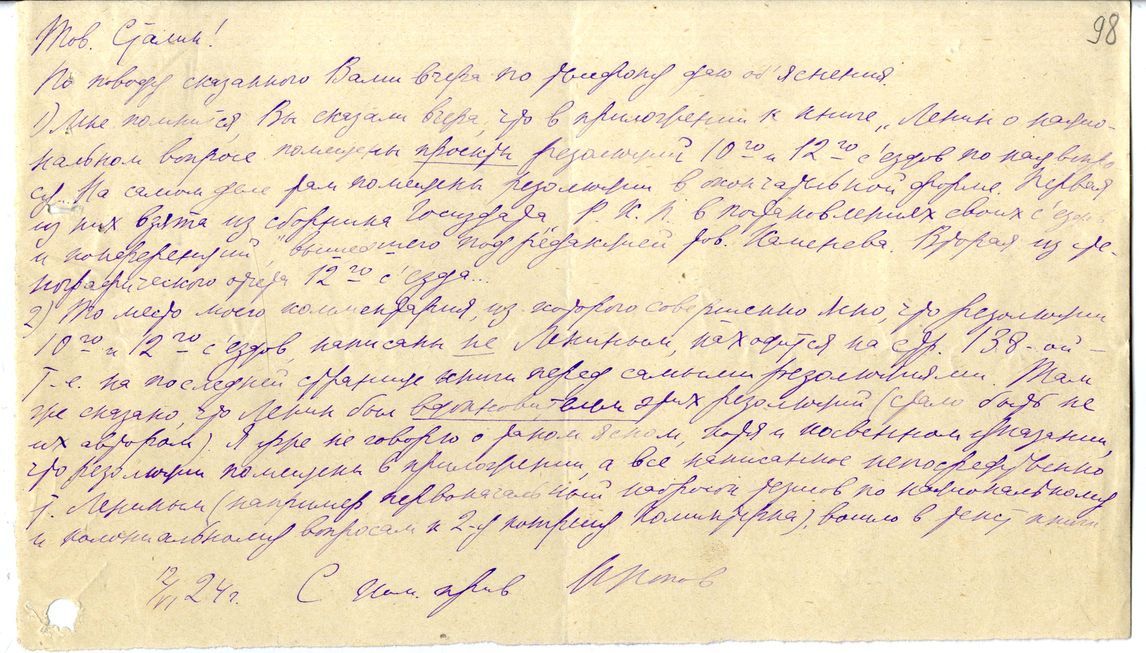 98
Тов. Сталин!
По поводу сказанного Вами вчера по телефону даю об'яснения.
1) Мне помнится, Вы сказали вчера, что в приложении к книге „Ленин о нацио-
нальном вопросе помещены проекты резолюций 10го и 12го с'ездов по нацвопро
су. На самом деле там помещены резолюции в окончательной форме. Первая
из них взята из сборника Госиздата Р.К.П. в постановлениях своих с'ездов
и конференций", вышедшего под редакцией тов. Каменева. Вторая из сте-
нографического отчета 12го с'езда...
2) То место моего комментария, из которого совершенно ясно, что резолюции
10го и 12го с'ездов, написаны не Лениным, находится на стр. 138-ой –
т-е. на последней странице книги перед самыми резолюциями. Там
же сказано, что Ленин был вдохновителем этих резолюций (стало быть не
их автором). Я уже не говорю о таком ясном, хотя и косвенном указании,
что резолюции помещены в приложении, а все написанное непосредственно
т. Лениным (например первоначальный набросок тезисов по национальному
и колониальному вопросам к 2-у конгрессу Коминтерна), вошло в текст книги
12/VI 24 г. С ком. прив